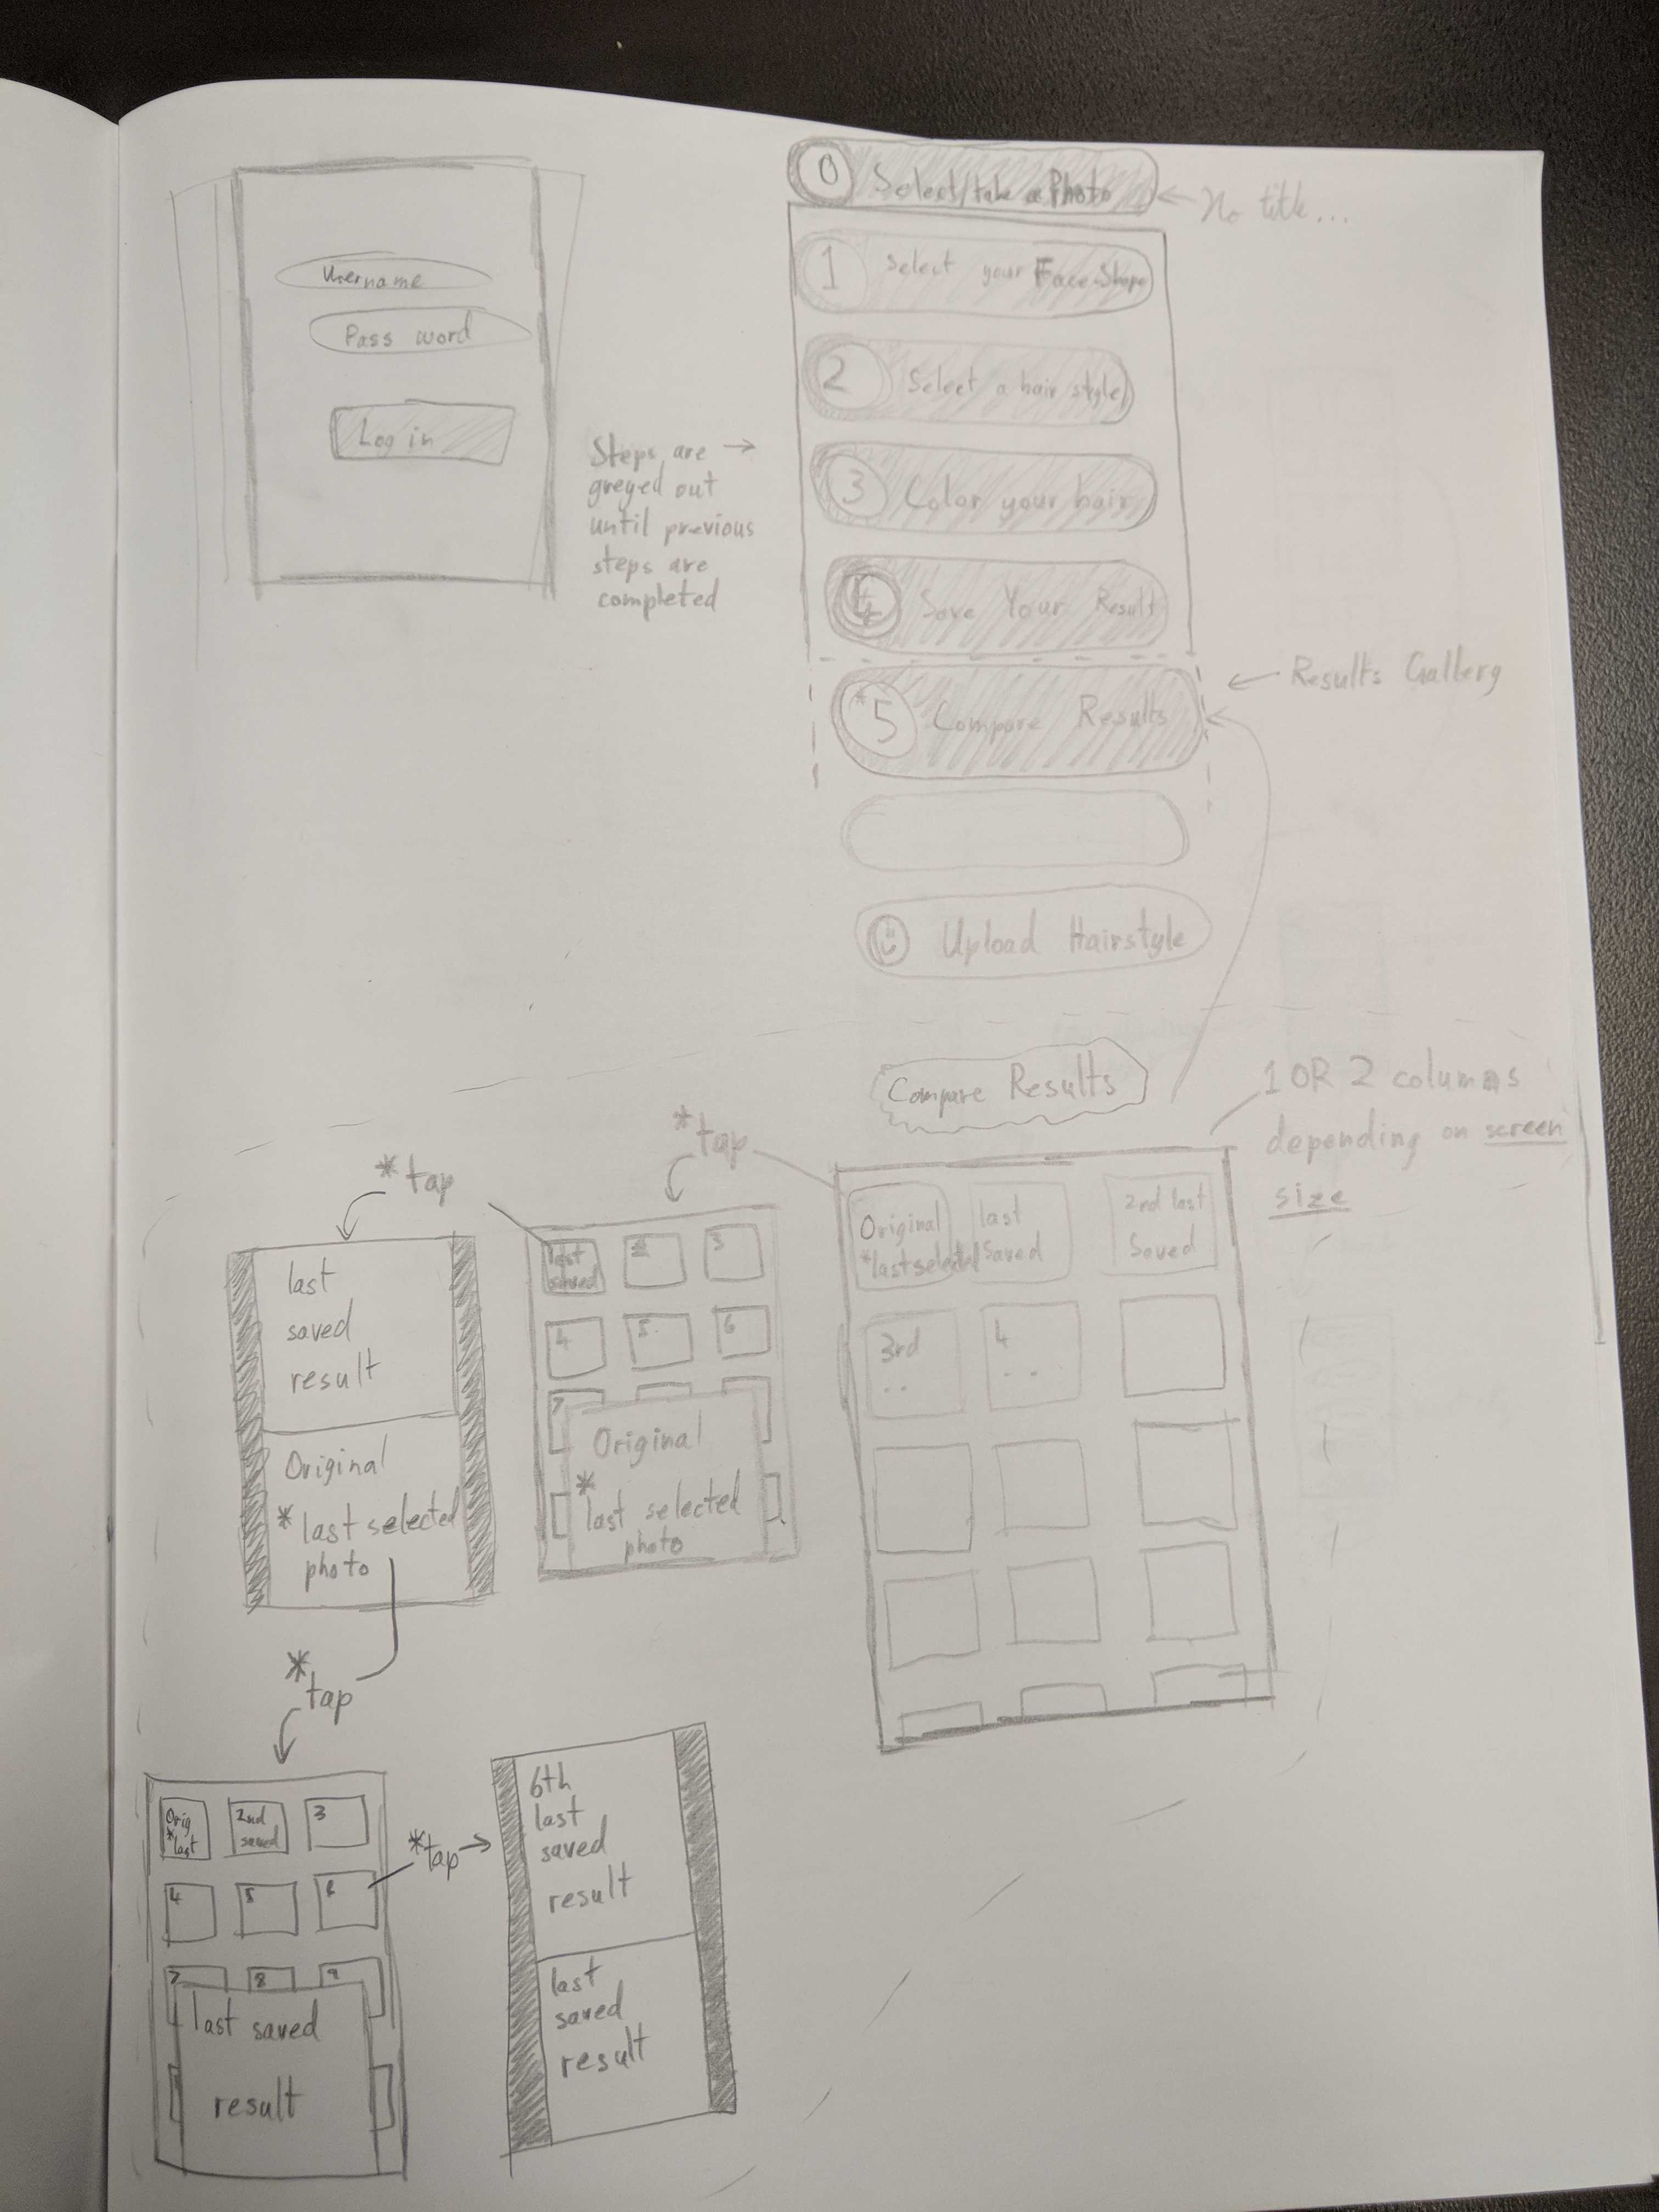 Username
Pass word
Log in
Steps are →
greyed out
until previous
steps are
completed
0 Select/take a Photo
← No title...
1 Select your Face Shape
2 Select a hair style
3 Color your hair
4 Save Your Result
*5 Compare Results
← Results Gallery
Upload Hairstyle
Compare Results
1 OR 2 columns
depending on screen
size
*tap
Original
*last selected
last
saved
2nd last
Saved
3rd
..
4
..
*tap
last
saved
2
3
4
5
6
7
Original
*
last selected
photo
last
saved
result
Original
*last selected
photo
*
tap
Orig
*last
2nd
saved
3
4
5
6
7
8
9
last saved
result
*tap →
6th
last
saved
result
last
saved
result